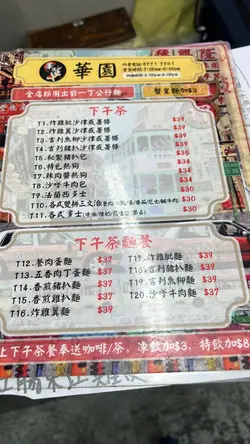 華園
外賣電話:6771 7701
營業時間:7:00am-5:00pm
全店採用出前一丁公仔麵
蟹皇麵加$3
下午茶
T1.炸雞髀沙律或薯條 $39
T2.炸雞翼沙律或薯條 $39
T3.吉列魚柳沙律或薯條 $39
T4.吉列豬扒沙律或薯條 $39
T5.秘製豬扒包 $34
T6.特色熱狗 $34
T7.辣肉醬熱狗 $34
T8.沙嗲牛肉包 $34
T9.法蘭西多士 $30
T10.各式雙拼三文治 $30
T11.各式多士 $30
下午茶麵餐
T12.餐肉蛋麵 $37
T13.五香肉丁蛋麵 $37
T14.香煎豬扒麵 $37
T15.香煎雞扒麵 $37
T16.炸雞翼麵 $39
T17.炸雞髀麵 $39
T18.吉列豬扒麵 $39
T19.吉列魚柳麵 $39
T20.沙嗲牛肉麵 $37
上下午茶餐奉送咖啡/茶，凍飲加$3，特飲加$8